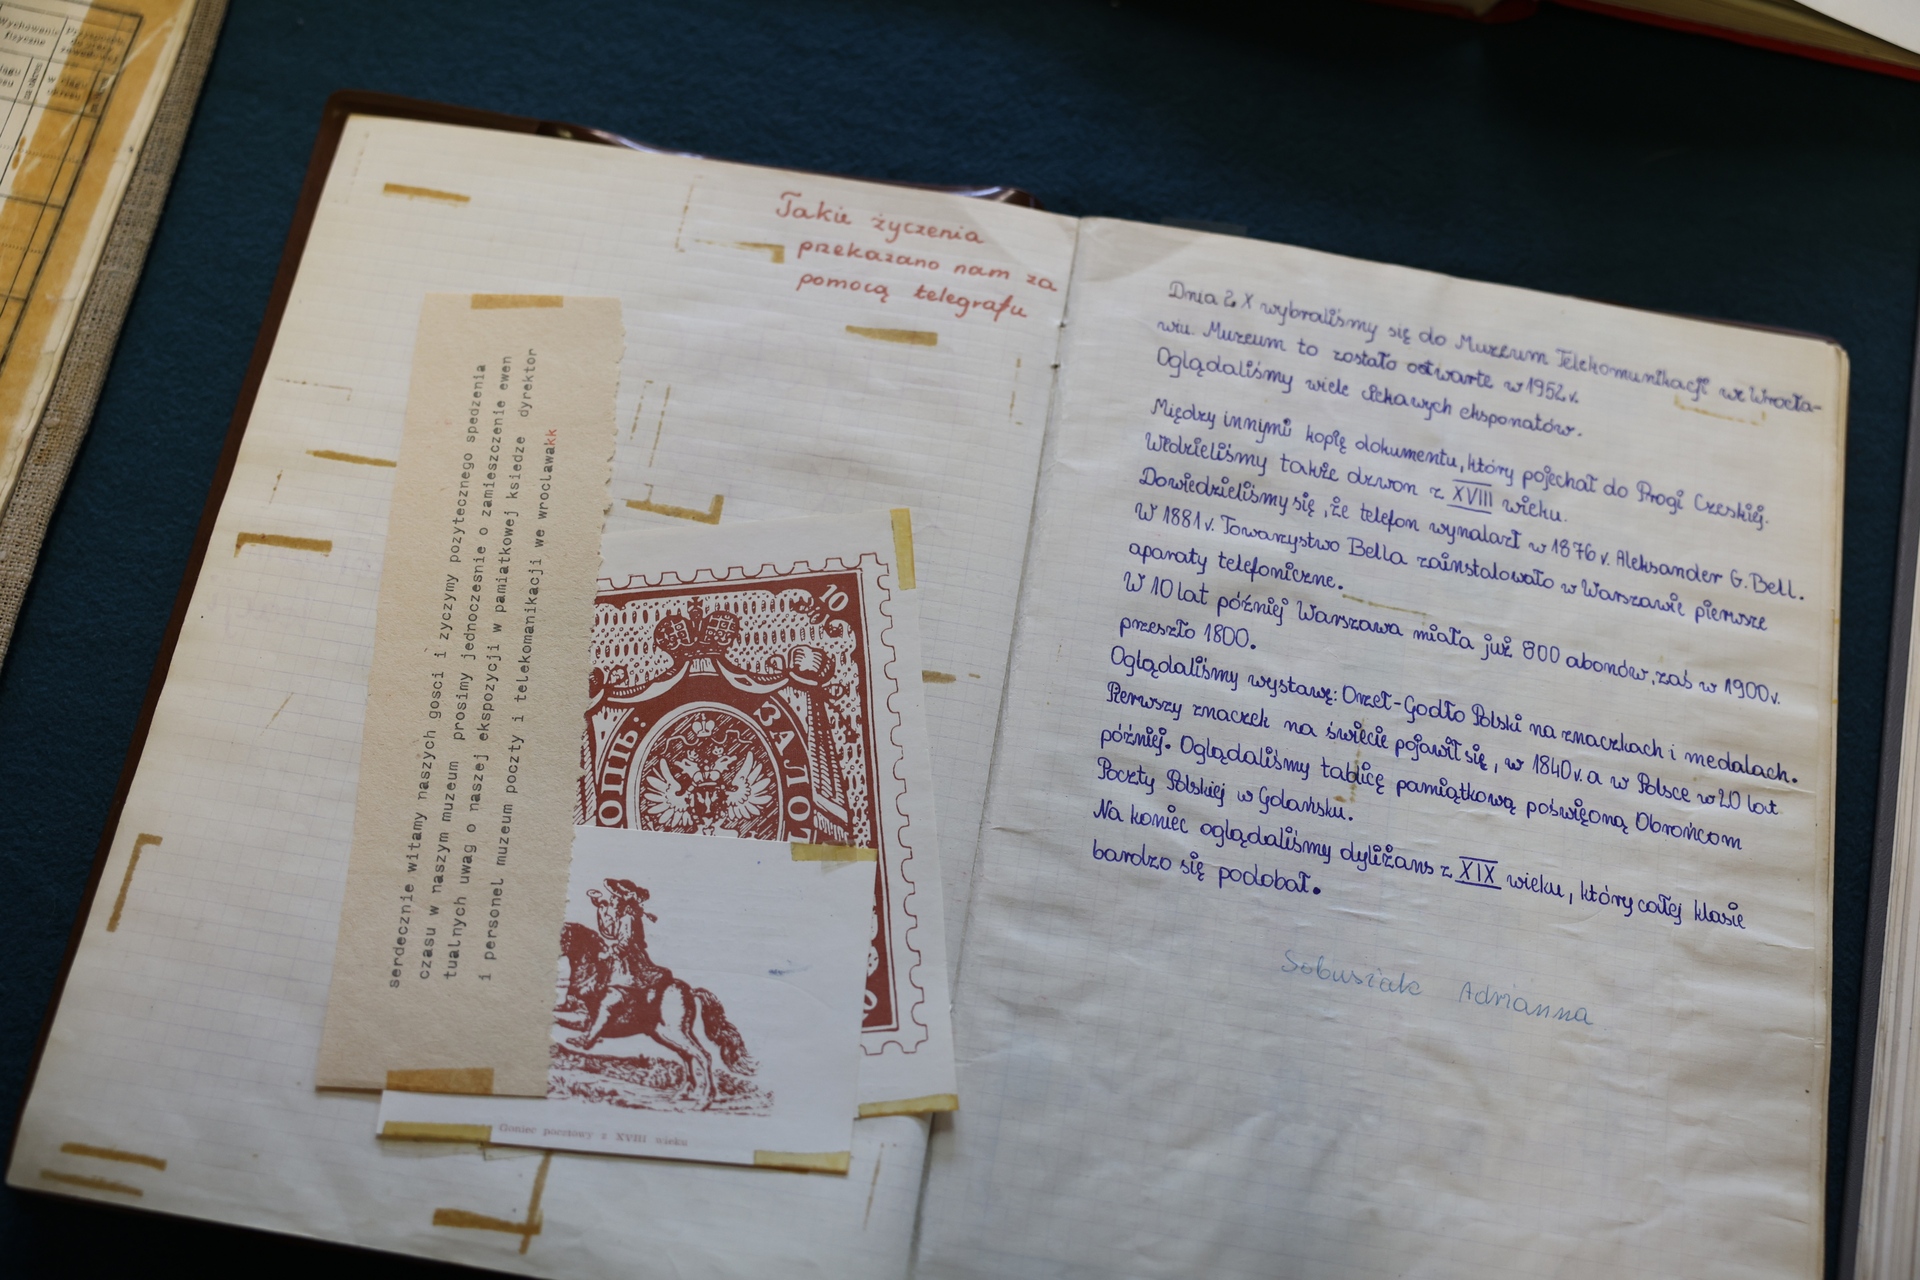 Wychowanie
fizyczne
Takie życzenia
przekazano nam za
pomocą telegrafu
serdecznie witamy naszych gosci i zyczymy pozytecznego spedzenia
czasu w naszym muzeum prosimy jednoczesnie o zamieszczenie ewen
tualnych uwag o naszej ekspozycji w pamiatkowej ksiedze dyrektor
i personel muzeum poczty i telekomanikacji we wroclawakk
10
ОПЬ: ЗАЛО
Goniec pocztowy z XVIII wieku
Dnia 2.X wybraliśmy się do Muzeum Telekomunikacji we Wrocła-
wiu. Muzeum to zostało otwarte w 1952r.
Oglądaliśmy wiele ciekawych eksponatów.
Między innymi kopię dokumentu, który pojechał do Pragi Czeskiej.
Widzieliśmy także dzwon z XVIII wieku.
Dowiedzieliśmy się, że telefon wynalazł w 1876r. Aleksander G. Bell.
W 1881r. Towarzystwo Bella zainstalowało w Warszawie pierwsze
aparaty telefoniczne.
W 10 lat później Warszawa miała już 800 abonów, zaś w 1900r.
przeszło 1800.
Oglądaliśmy wystawę: Orzeł-Godło Polski na znaczkach i medalach.
Pierwszy znaczek na świecie pojawił się, w 1840r. a w Polsce w 20 lat
później. Oglądaliśmy tablicę pamiątkową poświęconą Obrońcom
Poczty Polskiej w Gdańsku.
Na koniec oglądaliśmy dyliżans z XIX wieku, który całej klasie
bardzo się podobał.
Sobusiak Adrianna